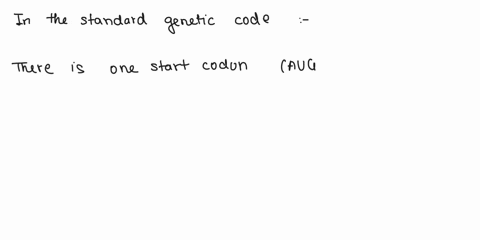 In the standard genetic code :-
There is one start codon (AUG